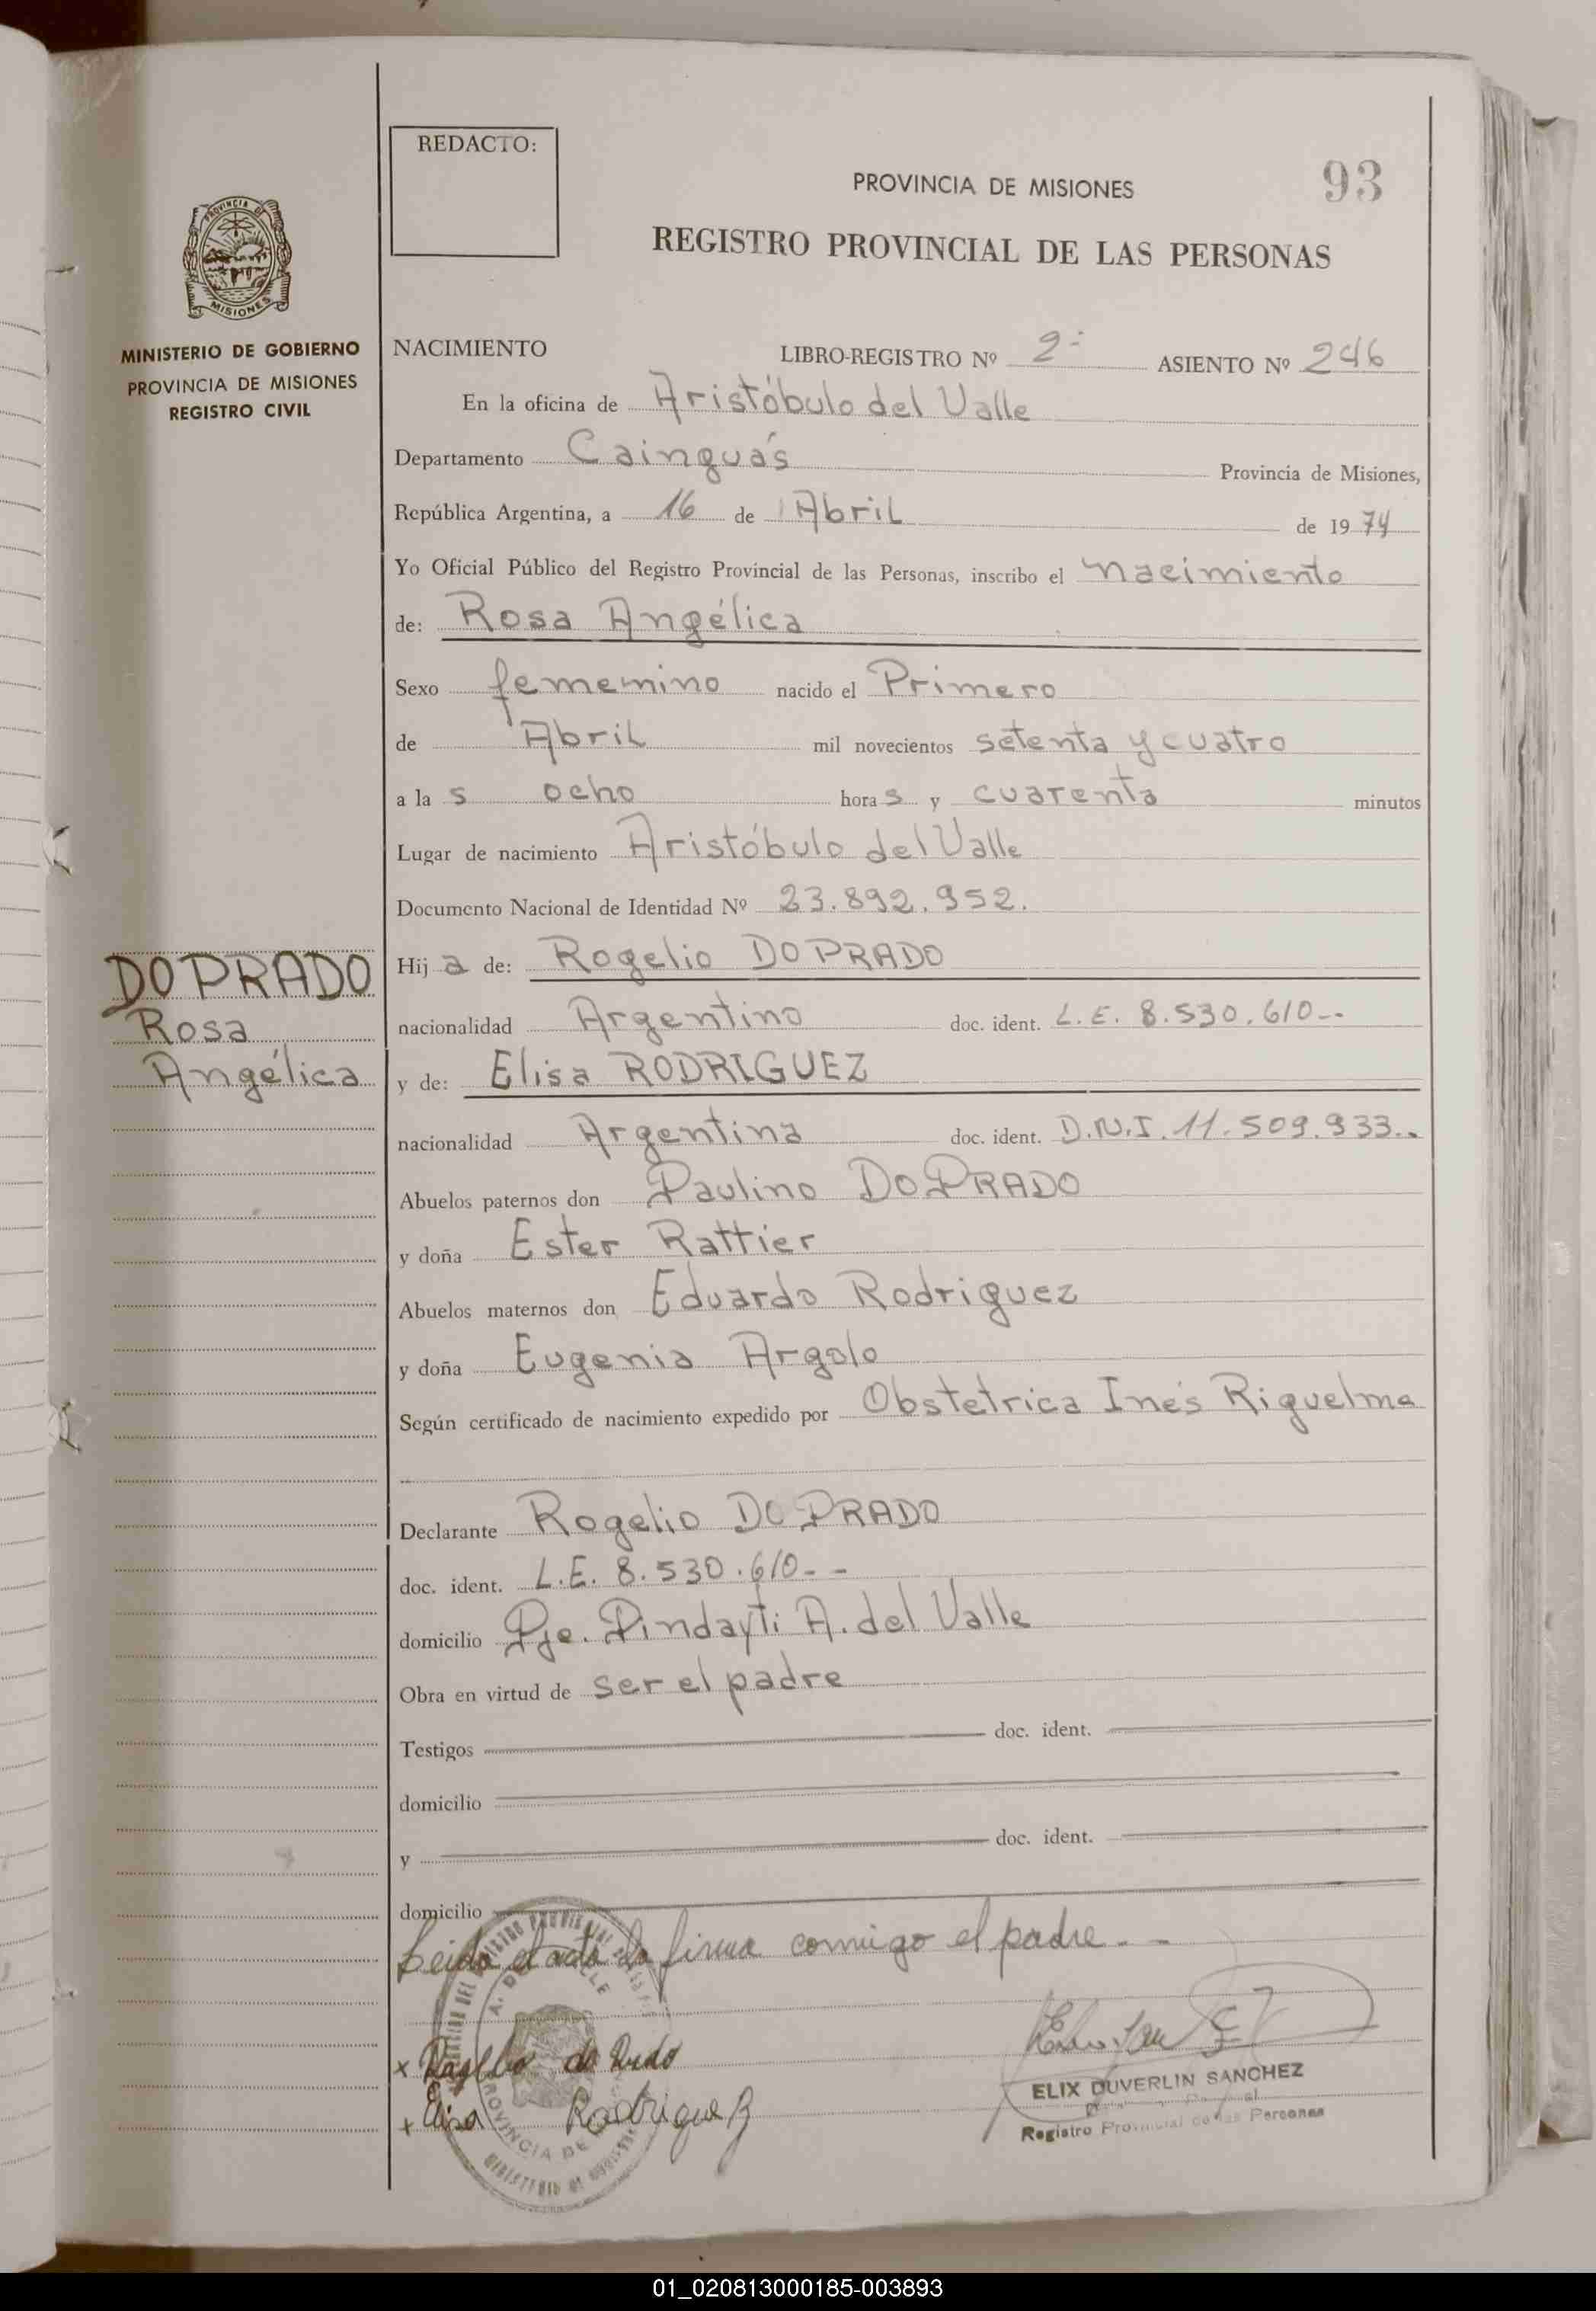 REDACTO:
PROVINCIA DE MISIONES
93
REGISTRO PROVINCIAL DE LAS PERSONAS
PROVINCIA DE
MISIONES
MINISTERIO DE GOBIERNO
PROVINCIA DE MISIONES
REGISTRO CIVIL
NACIMIENTO LIBRO-REGISTRO Nº 2- ASIENTO Nº 246
En la oficina de Aristóbulo del Valle
Departamento Cainguás Provincia de Misiones,
República Argentina, a 16 de Abril de 1974
Yo Oficial Público del Registro Provincial de las Personas, inscribo el nacimiento
de: Rosa Angélica
Sexo femenino nacido el Primero
de Abril mil novecientos setenta y cuatro
a las ocho horas y cuarenta minutos
Lugar de nacimiento Aristóbulo del Valle
Documento Nacional de Identidad Nº 23.892.952.
DO PRADO
Rosa
Angélica
Hija de: Rogelio DO PRADO
nacionalidad Argentino doc. ident. L.E. 8.530.610--
y de: Elisa RODRIGUEZ
nacionalidad Argentina doc. ident. D.N.I. 11.509.933--
Abuelos paternos don Paulino DO PRADO
y doña Ester Rattier
Abuelos maternos don Eduardo Rodriguez
y doña Eugenia Argolo
Según certificado de nacimiento expedido por Obstetrica Inés Riquelme
Declarante Rogelio DO PRADO
doc. ident. L.E. 8.530.610--
domicilio Pje. Pindaytí A. del Valle
Obra en virtud de ser el padre
Testigos doc. ident.
domicilio
y doc. ident.
domicilio
Leida el acta la firma conmigo el padre--
x do Prado
x Elisa Rodriguez
ELIX DUVERLIN SANCHEZ
Registro Provincial de las Personas
01_020813000185-003893